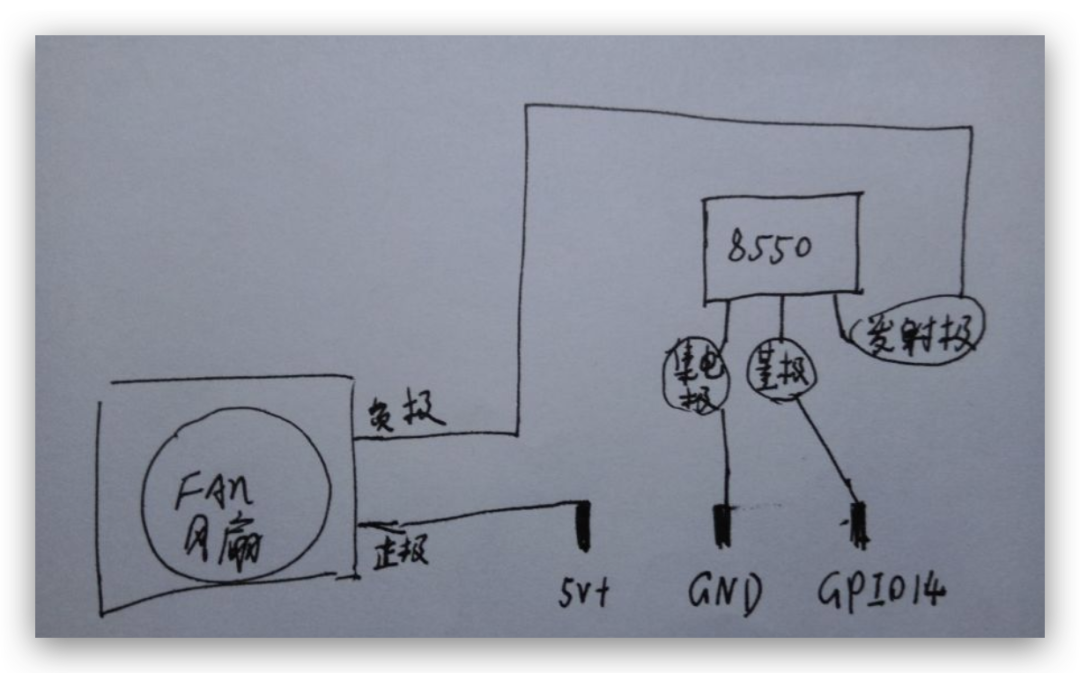 8550
发射极
集电
极
基极
负极
FAN
风扇
正极
5V+
GND
GPIO14